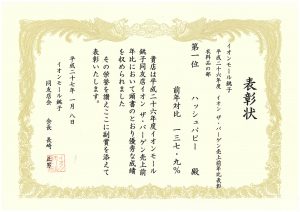 表彰状
イオンモール銚子
平成二十六年度 イオン ザ・バーゲン売上前年比表彰
衣料品の部
第一位 ハッシュパピー 殿
前年対比 一三七・九%
貴店は平成二十六年度イオンモール
銚子同友店イオン ザ・バーゲン売上前
年比において頭書のとおり優秀な成績
を収められました
その栄誉を讃えここに副賞を添えて
表彰いたします。
平成二十七年一月八日
イオンモール銚子
同友店会 会長 長崎